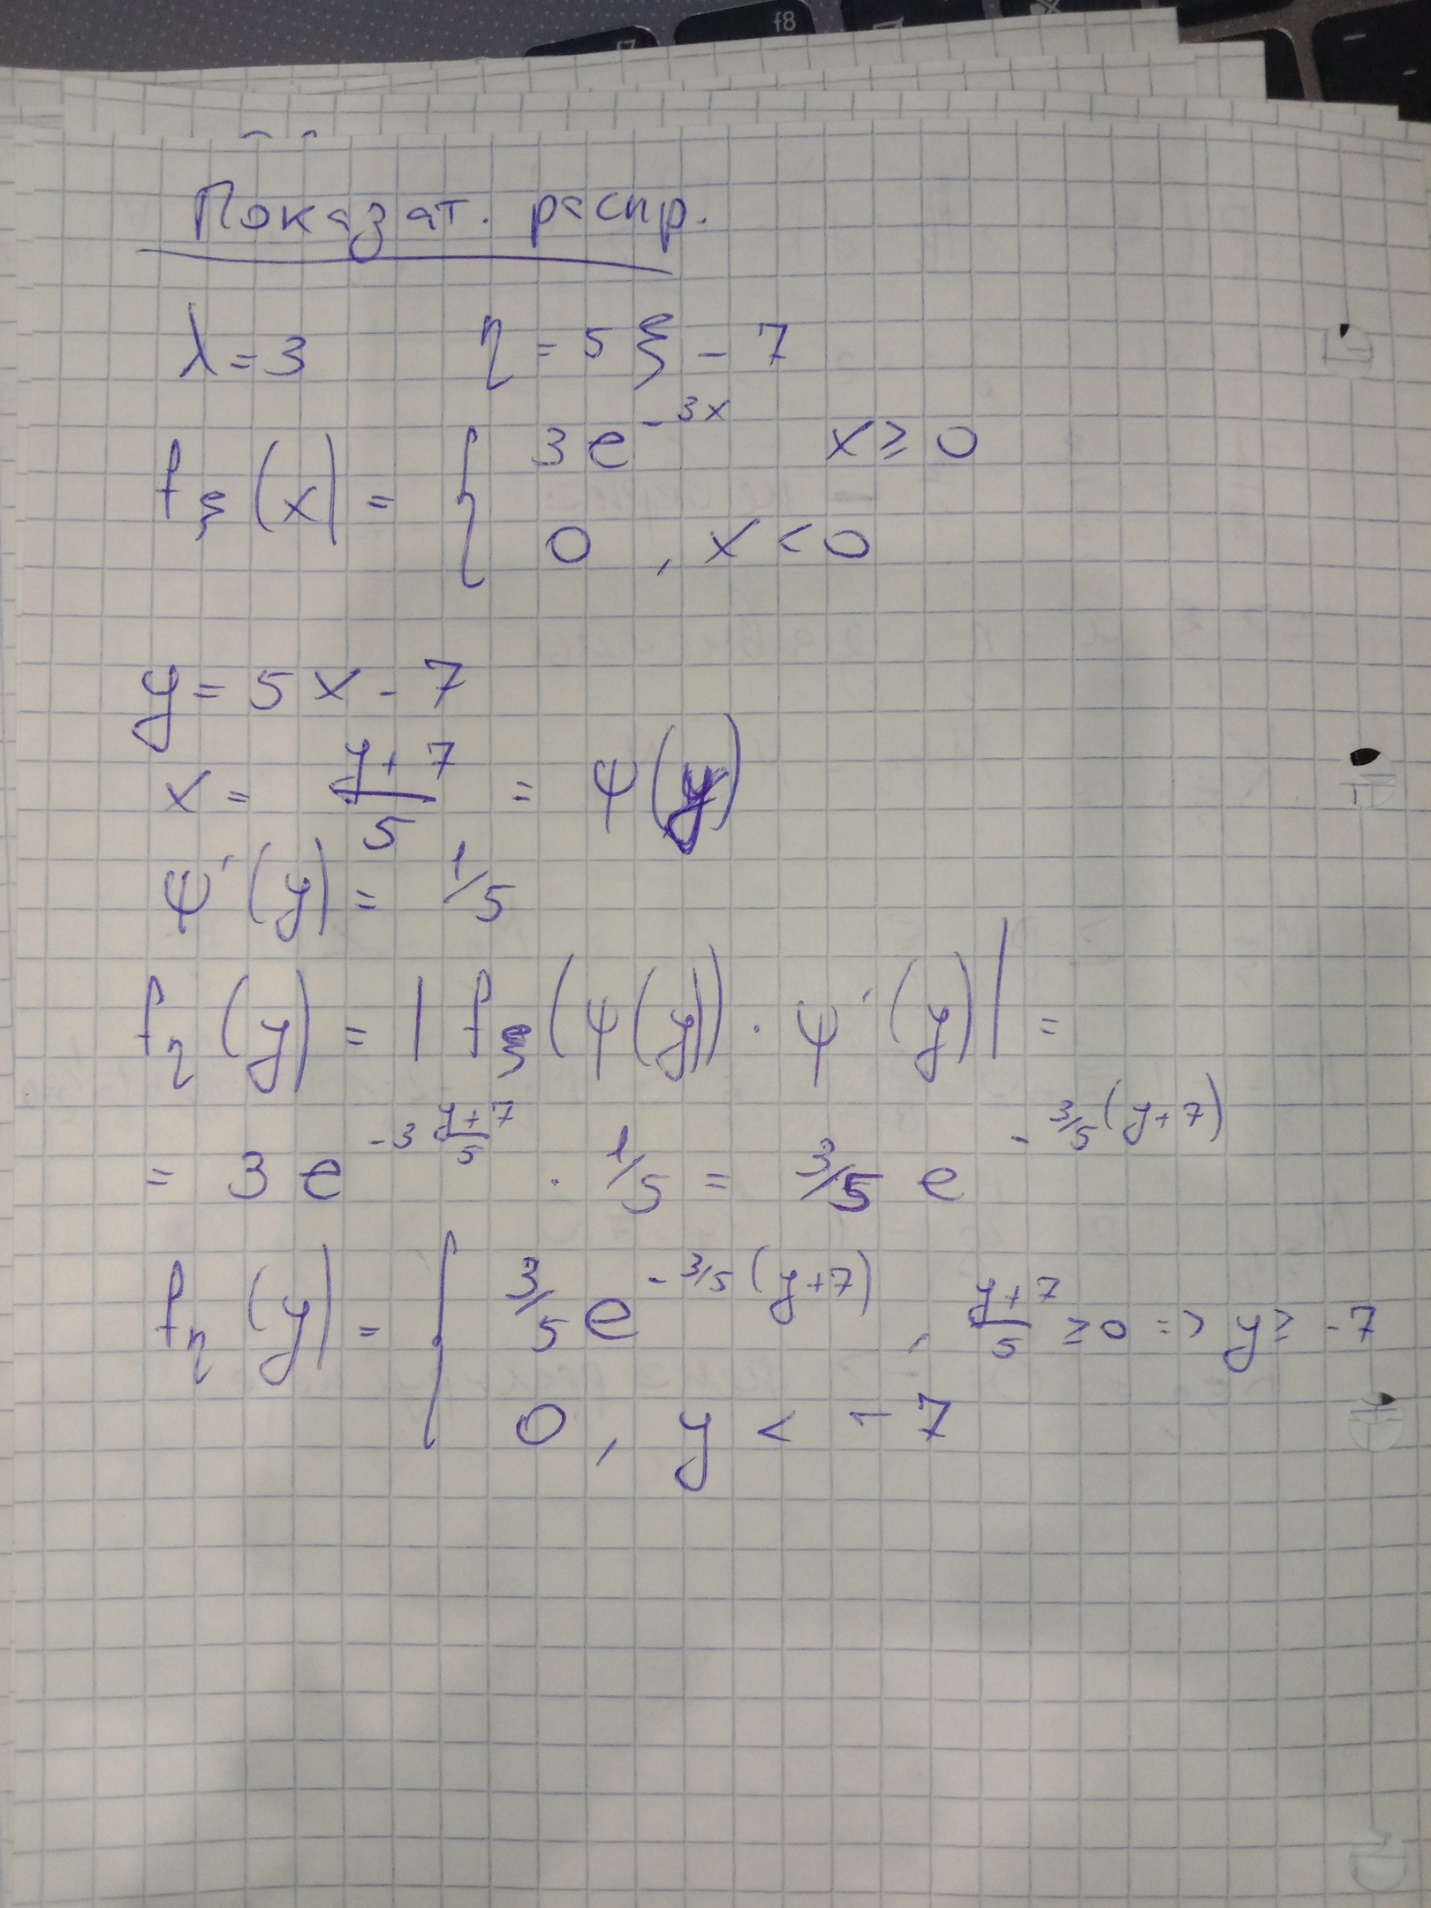 f7 f8
Показат. распр.
λ = 3 η = 5ξ - 7
f_ξ(x) = { 3e^{-3x} x ≥ 0
0 , x < 0
y = 5x - 7
x = \frac{y+7}{5} = ψ(y)
ψ'(y) = 1/5
f_η(y) = |f_ξ(ψ(y)) · ψ'(y)| =
= 3e^{-3\frac{y+7}{5}} · 1/5 = 3/5 e^{-3/5(y+7)}
f_η(y) = { 3/5 e^{-3/5(y+7)} , \frac{y+7}{5} ≥ 0 => y ≥ -7
0 , y < -7